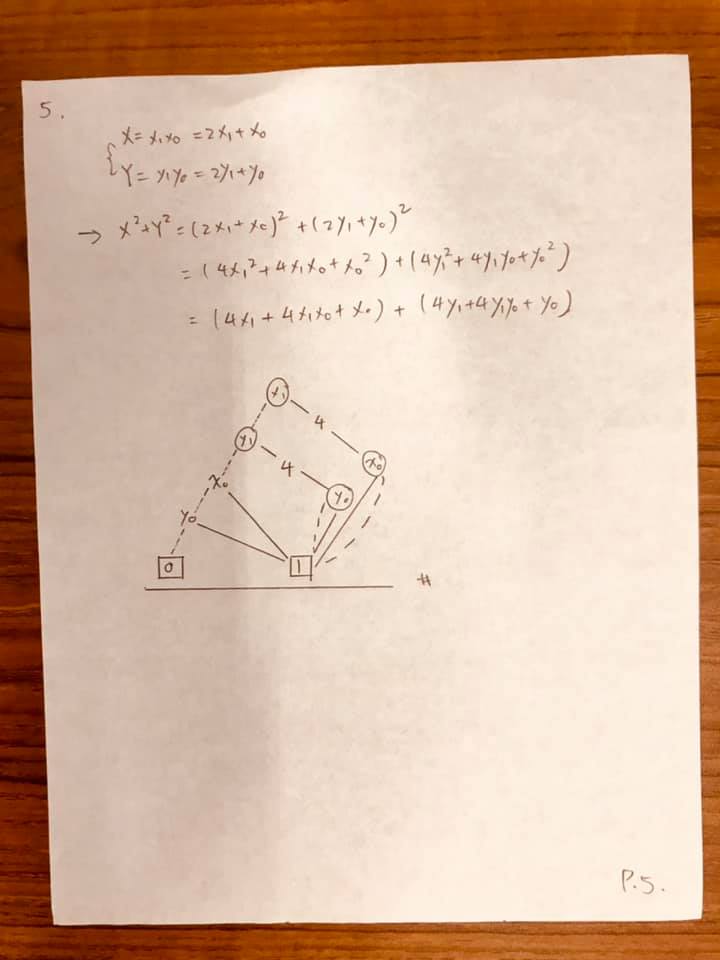 5.
X = x₁x₀ = 2x₁ + x₀
Y = y₁y₀ = 2y₁ + y₀
→ X² + Y² = (2x₁ + x₀)² + (2y₁ + y₀)²
= (4x₁² + 4x₁x₀ + x₀²) + (4y₁² + 4y₁y₀ + y₀²)
= (4x₁ + 4x₁x₀ + x₀) + (4y₁ + 4y₁y₀ + y₀)
x₁
4
y₁
x₀
4
x₀
y₀
y₀
0
1
#
P.5.